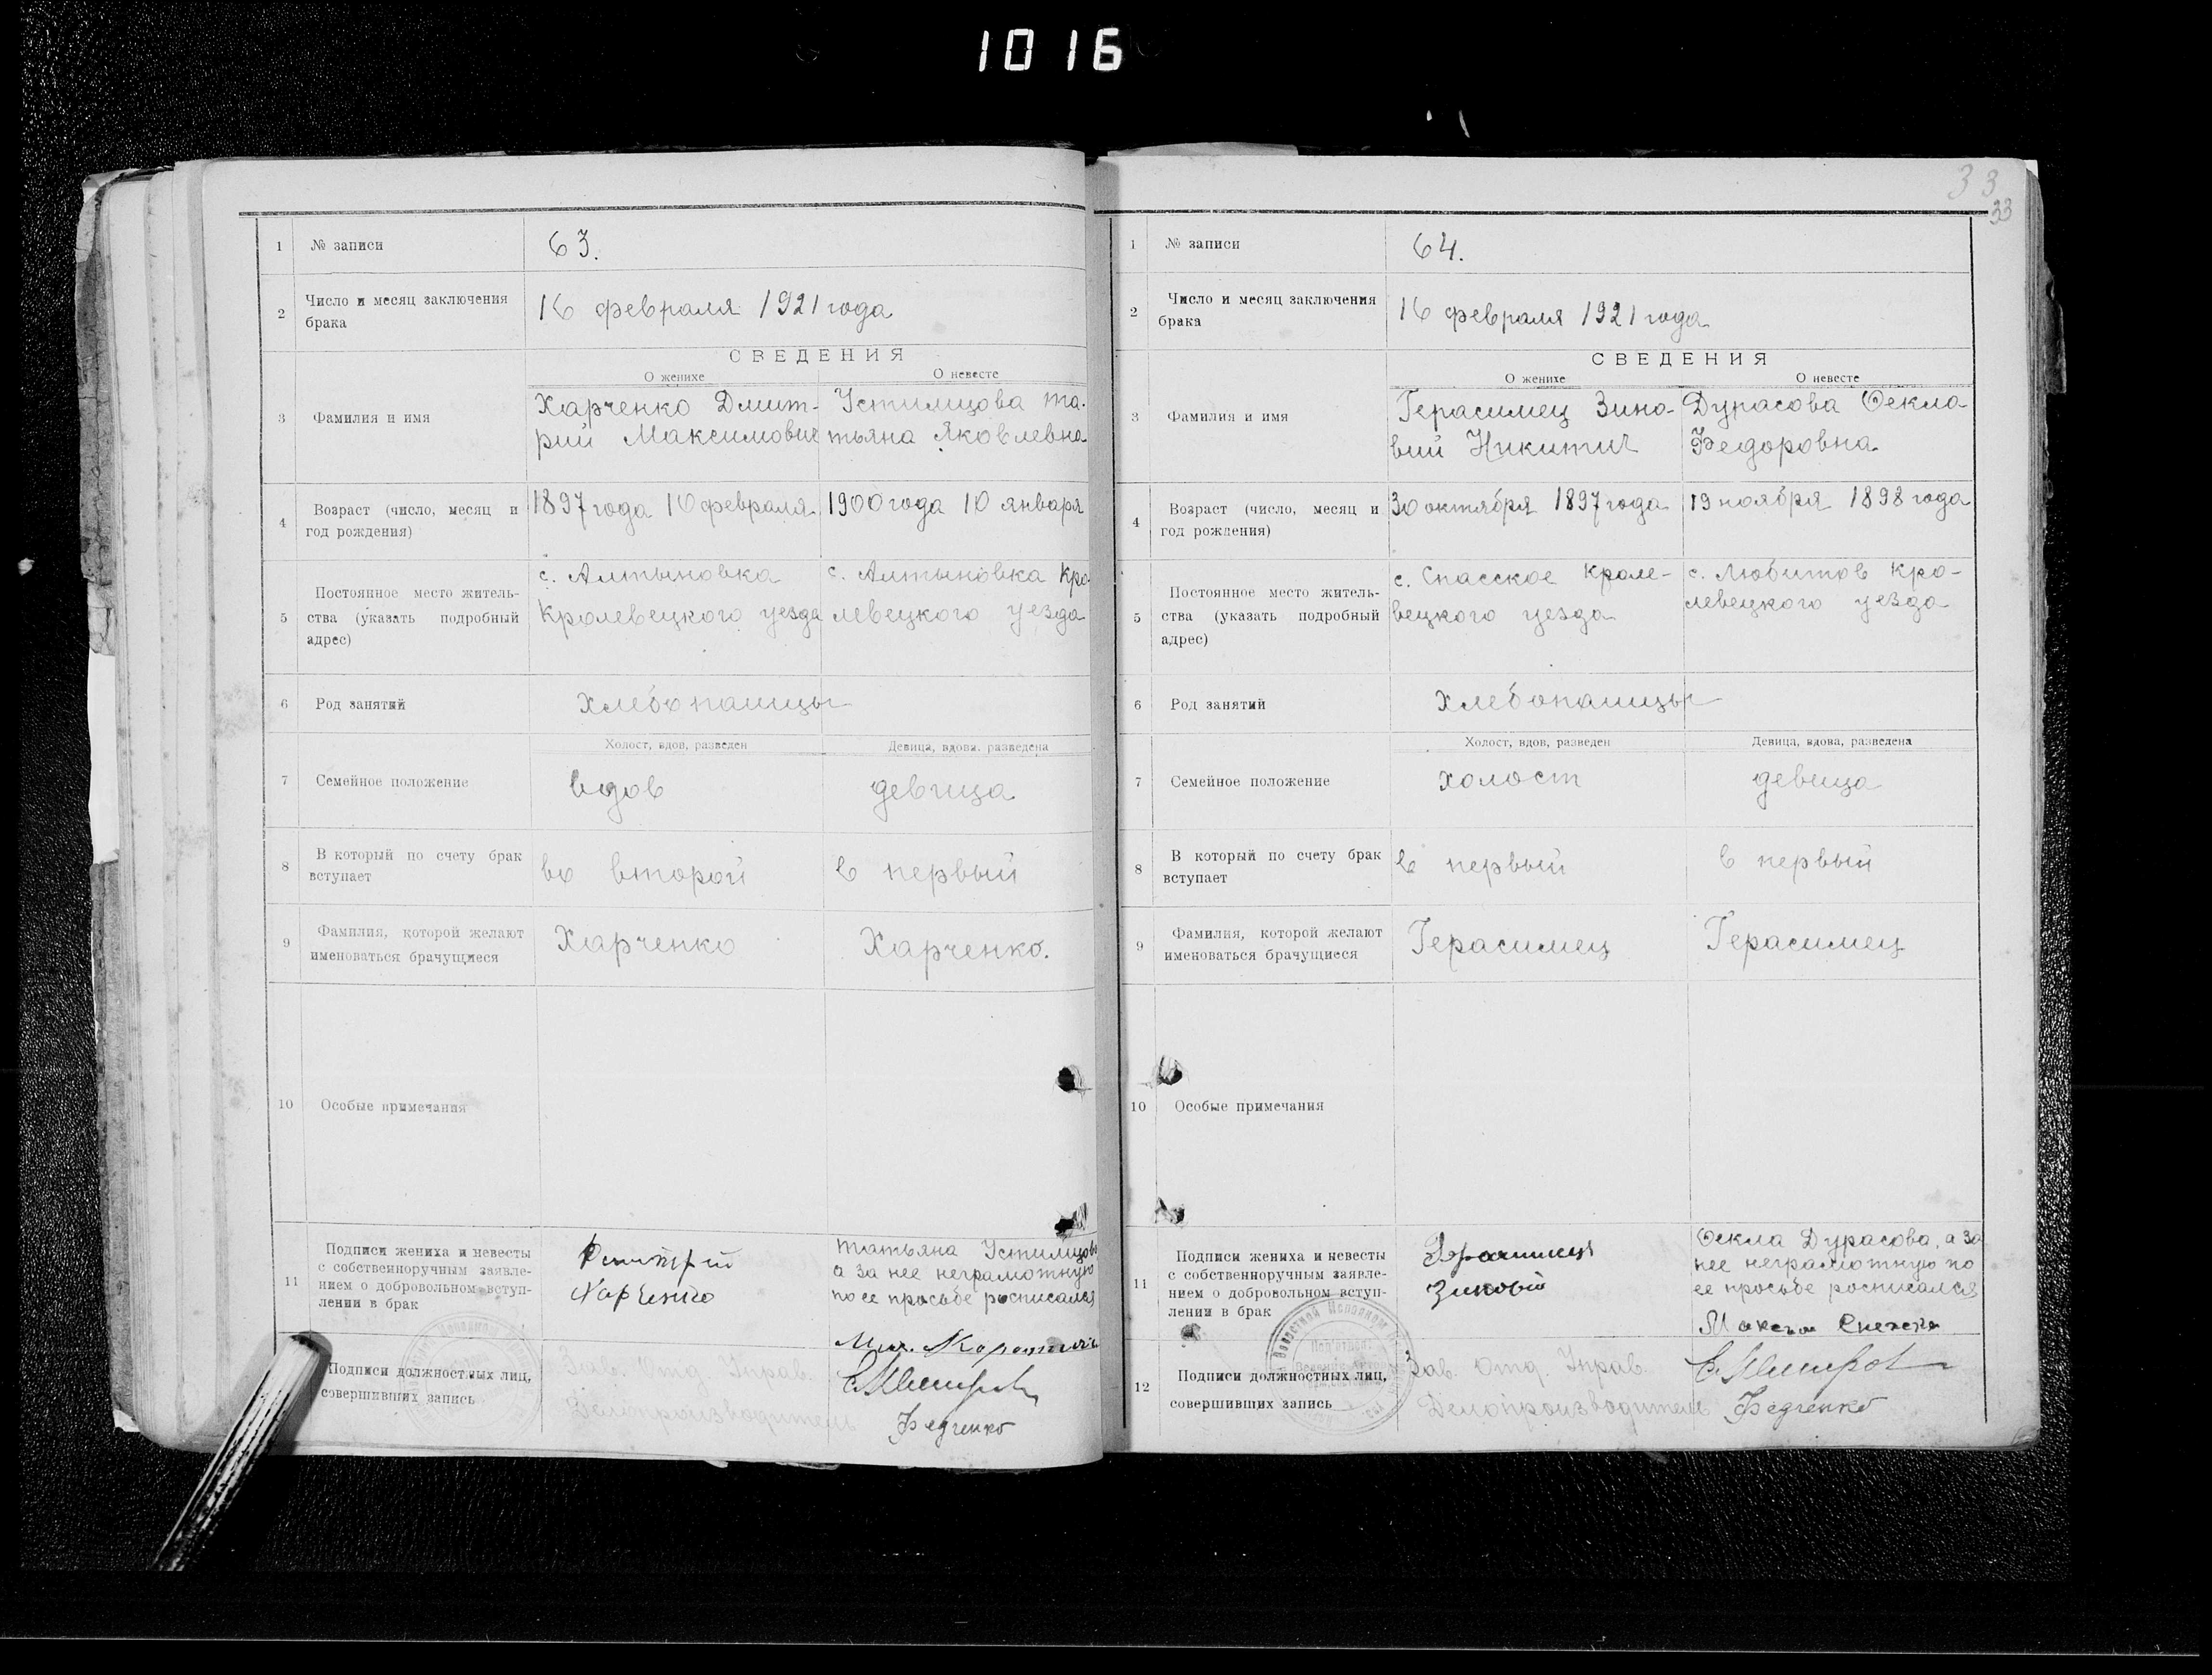 1016
33
33
1 № записи 63.
2 Число и месяц заключения
брака
16 февраля 1921 года
СВЕДЕНИЯ
О женихе О невесте
3 Фамилия и имя
Харченко Дмит- Устимцова Та-
рий Максимович тьяна Яковлевна
4 Возраст (число, месяц и
год рождения)
1897 года 10 февраля 1900 года 10 января
5 Постоянное место житель-
ства (указать подробный
адрес)
с. Алтыновка с. Алтыновка Кро-
Кролевецкого уезда левецкого уезда
6 Род занятий хлебопашцы
Холост, вдов, разведен Девица, вдова, разведена
7 Семейное положение вдов девица
8 В который по счету брак
вступает
во второй в первый
9 Фамилия, которой желают
именоваться брачущиеся
Харченко Харченко.
10 Особые примечания
11 Подписи жениха и невесты
с собственноручным заявле-
нием о добровольном вступ-
лении в брак
Дмитрий
Харченко
Татьяна Устимцова
а за нее неграмотную
по ее просьбе росписался
Подписи должностных лиц,
совершивших запись
Зав. Отд. Управ.
Делопроизводитель Федченко
1 № записи 64.
2 Число и месяц заключения
брака
16 февраля 1921 года
СВЕДЕНИЯ
О женихе О невесте
3 Фамилия и имя
Герасимец Зино- Дурасова Фекла
вий Никитич Федоровна
4 Возраст (число, месяц и
год рождения)
30 октября 1897 года 19 ноября 1898 года
5 Постоянное место житель-
ства (указать подробный
адрес)
с. Спасское Кроле- с. Любитов Кро-
вецкого уезда левецкого уезда
6 Род занятий хлебопашцы
Холост, вдов, разведен Девица, вдова, разведена
7 Семейное положение холост девица
8 В который по счету брак
вступает
в первый в первый
9 Фамилия, которой желают
именоваться брачущиеся
Герасимец Герасимец
10 Особые примечания
11 Подписи жениха и невесты
с собственноручным заявле-
нием о добровольном вступ-
лении в брак
Зиновий
Фекла Дурасова, а за
нее неграмотную по
ее просьбе росписался
Максим
12 Подписи должностных лиц,
совершивших запись
Зав. Отд. Управ.
Делопроизводитель Федченко